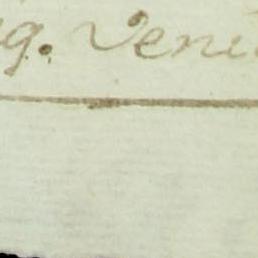 g. Veni